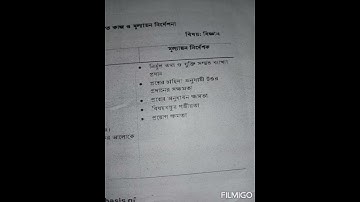 ত কাজ ও মূল্যায়ন নির্দেশনা
বিষয়: বিজ্ঞান
মূল্যায়ন নির্দেশক
• নির্ভুল তথ্য ও যুক্তি সম্মত ব্যাখ্যা
প্রদান
• প্রশ্নের চাহিদা অনুযায়ী উত্তর
প্রদানের সক্ষমতা
• প্রশ্নের অনুধাবন ক্ষমতা
• বিষয়বস্তুর গভীরতা
• প্রয়োগ ক্ষমতা
র আলোকে
hesis of
FILMIGO